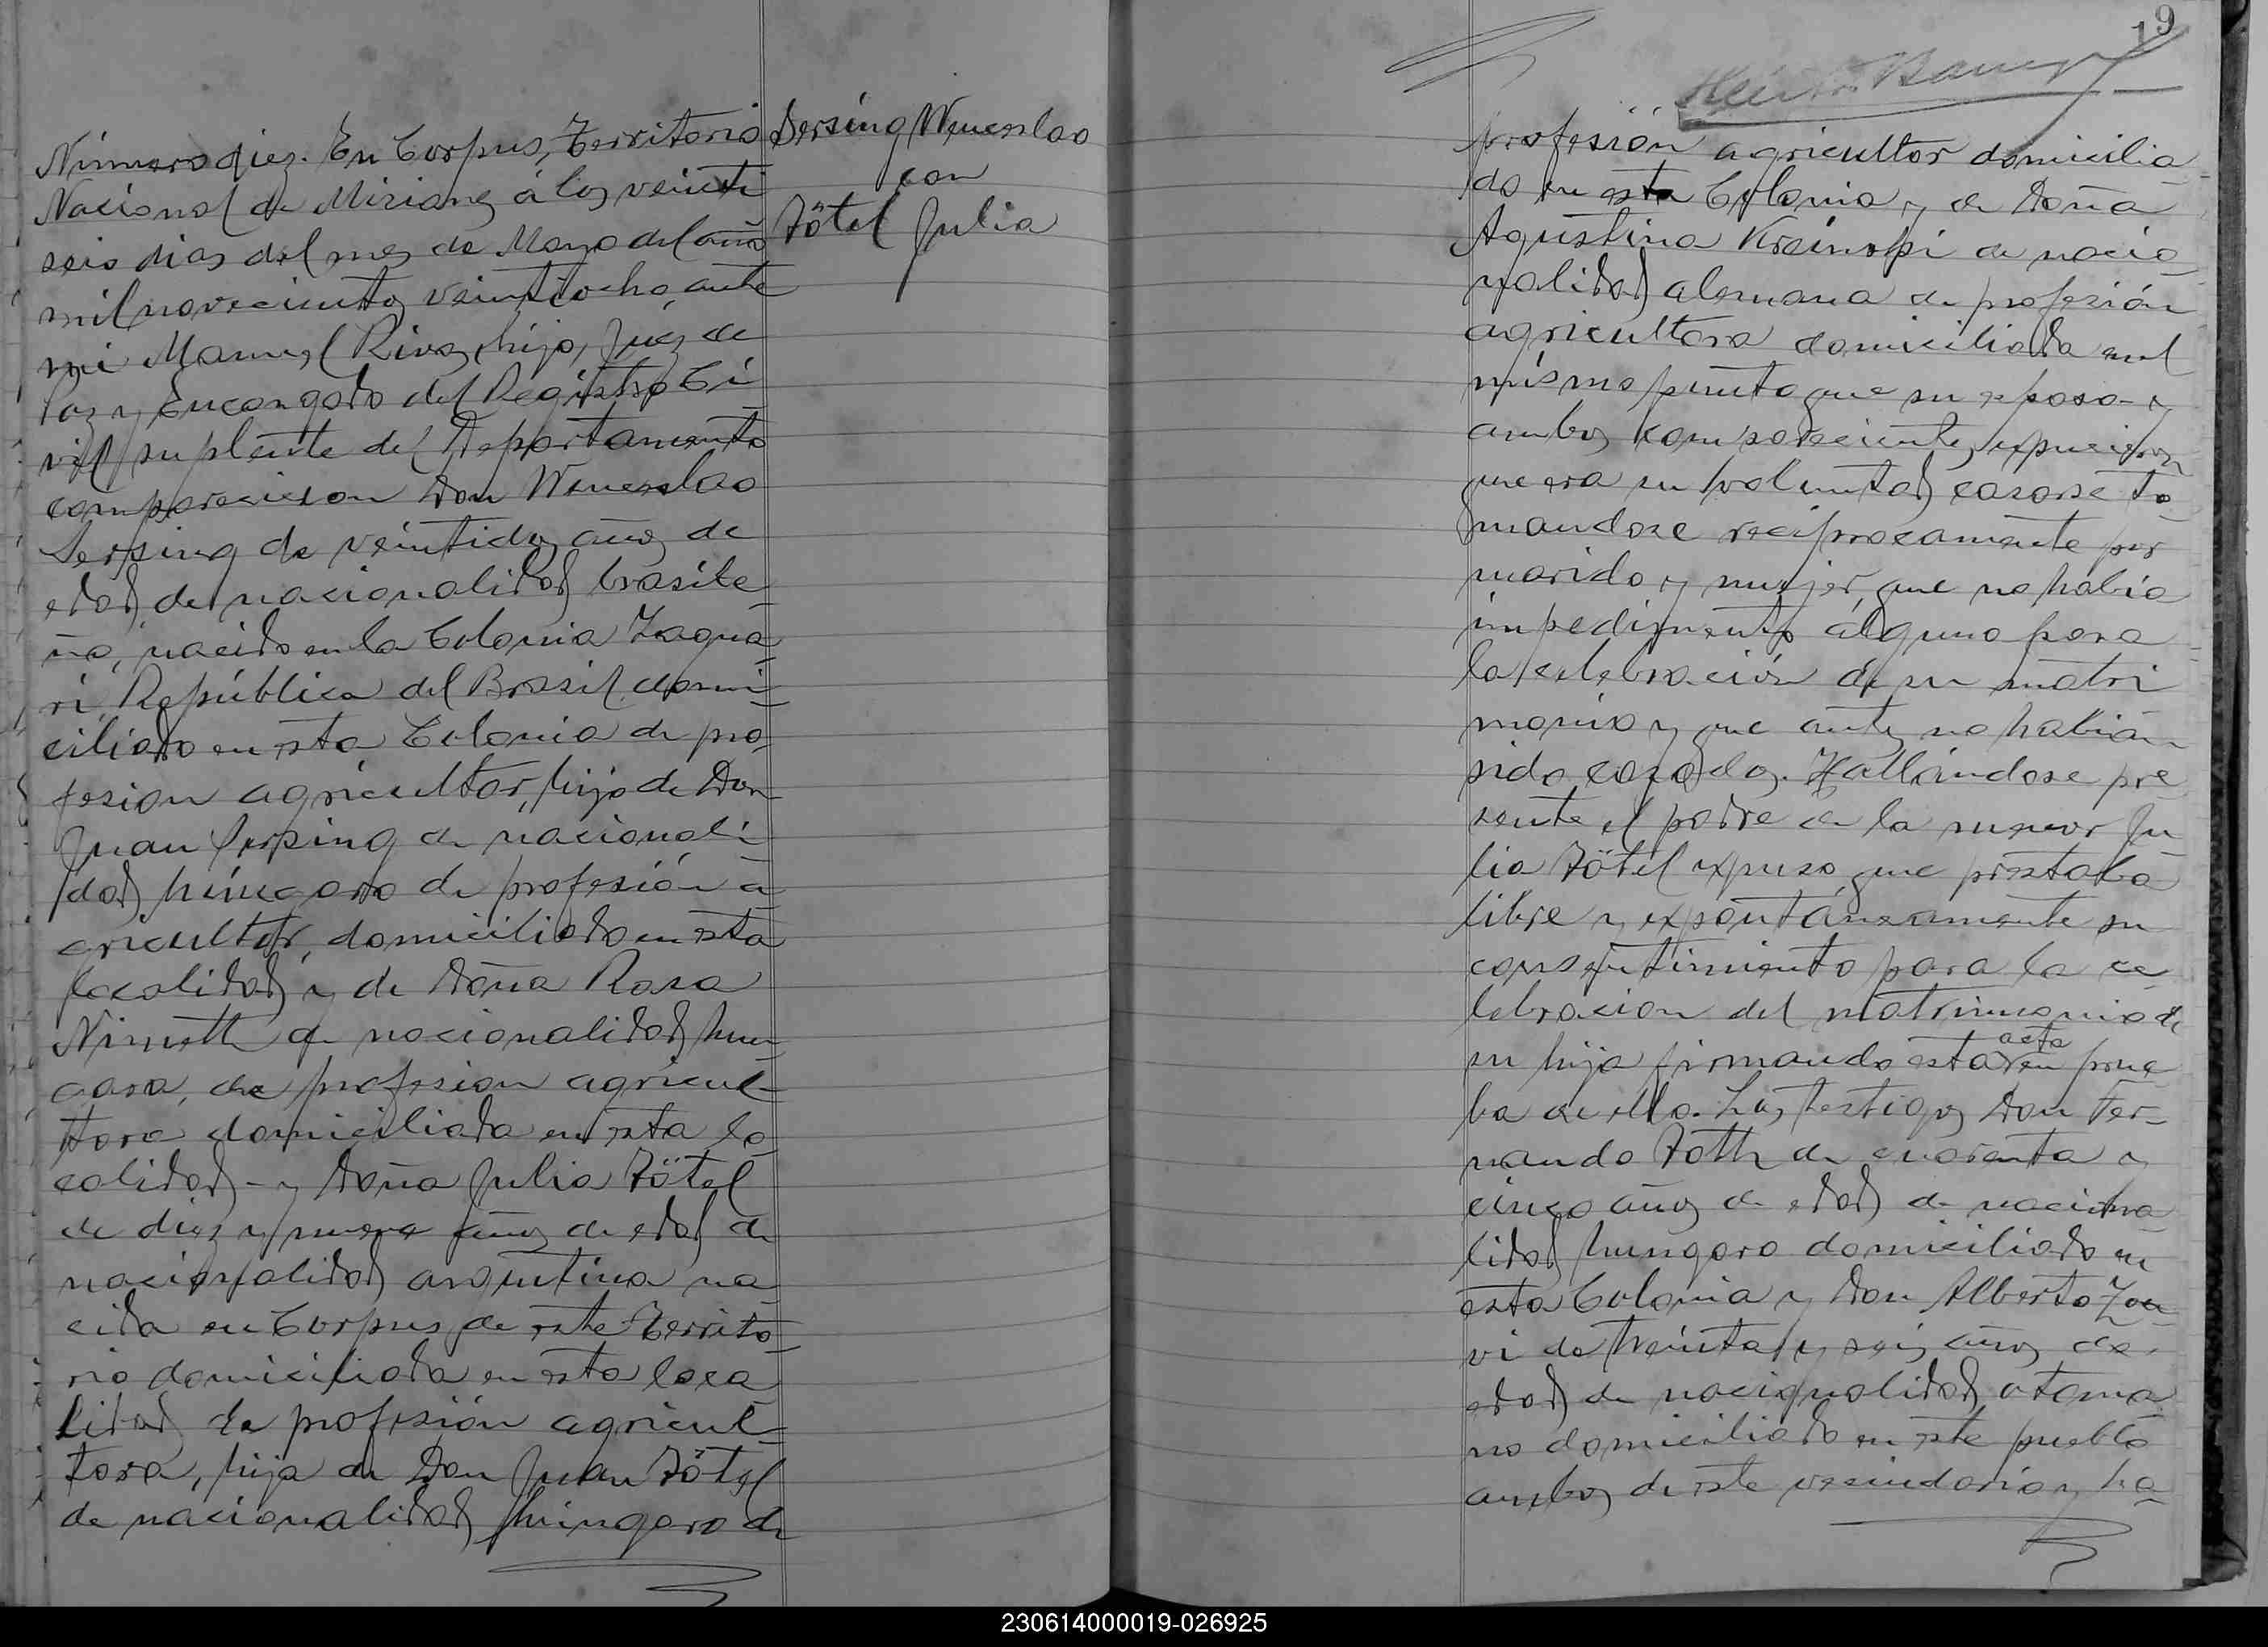 Número diez. En Corpus, Territorio
Nacional de Misiones á los veinti
seis dias del mes de Mayo del año
mil novecientos veintiocho, ante
mi Manuel Rivas, hijo, Juez de
Paz y Encargado del Registro Ci
vil suplente del Departamento
comparecieron Don Wenceslao
Serping de veintidos años de
edad de nacionalidad brasile
ña, nacido en la Colonia Yagua
ri República del Brasil domi
ciliado en esta Colonia de pro
fesion agricultor, hijo de Don
Juan Serping de nacionali
dad húngaro de profesión a
gricultor, domiciliado en esta
localidad y de Doña Rosa
Nimett de nacionalidad hun
gara, de profesion agricul
tora domiciliada en esta lo
calidad - y Doña Julia Tötel
de diez y nueve años de edad de
nacionalidad argentina na
cida en Corpus de este Territo
rio domiciliada en esta loca
lidad de profesión agricul
tora, hija de Don Juan Tötel
de nacionalidad húngaro de
Sersing Wenceslao
con
Tötel Julia
19
profesión agricultor domicilia
do en esta Colonia y de Doña
Agustina de nacio
nalidad alemana de profesión
agricultora domiciliada en el
mismo punto que su esposo y
ambos comparecientes expusieron
que era su voluntad casarse to
mandose reciprocamente por
marido y mujer, que no habia
impedimento alguno para
la celebración de su matri
monio y que antes no habian
sido casados. Hallándose pre
sente el padre de la menor Ju
lia Tötel expuso que prestaba
libre y expontáneamente su
consentimiento para la ce
lebracion del matrimonio de
su hija firmando esta acta en prue
ba de ello. Los testigos Don Fer-
nando Toth de cuarenta y
cinco años de edad de naciona
lidad hungaro domiciliado en
esta Colonia y Don Alberto
de treinta y seis años de
edad de nacionalidad otoma
no domiciliado en este pueblo
ambos de este vecindario y ha
230614000019-026925